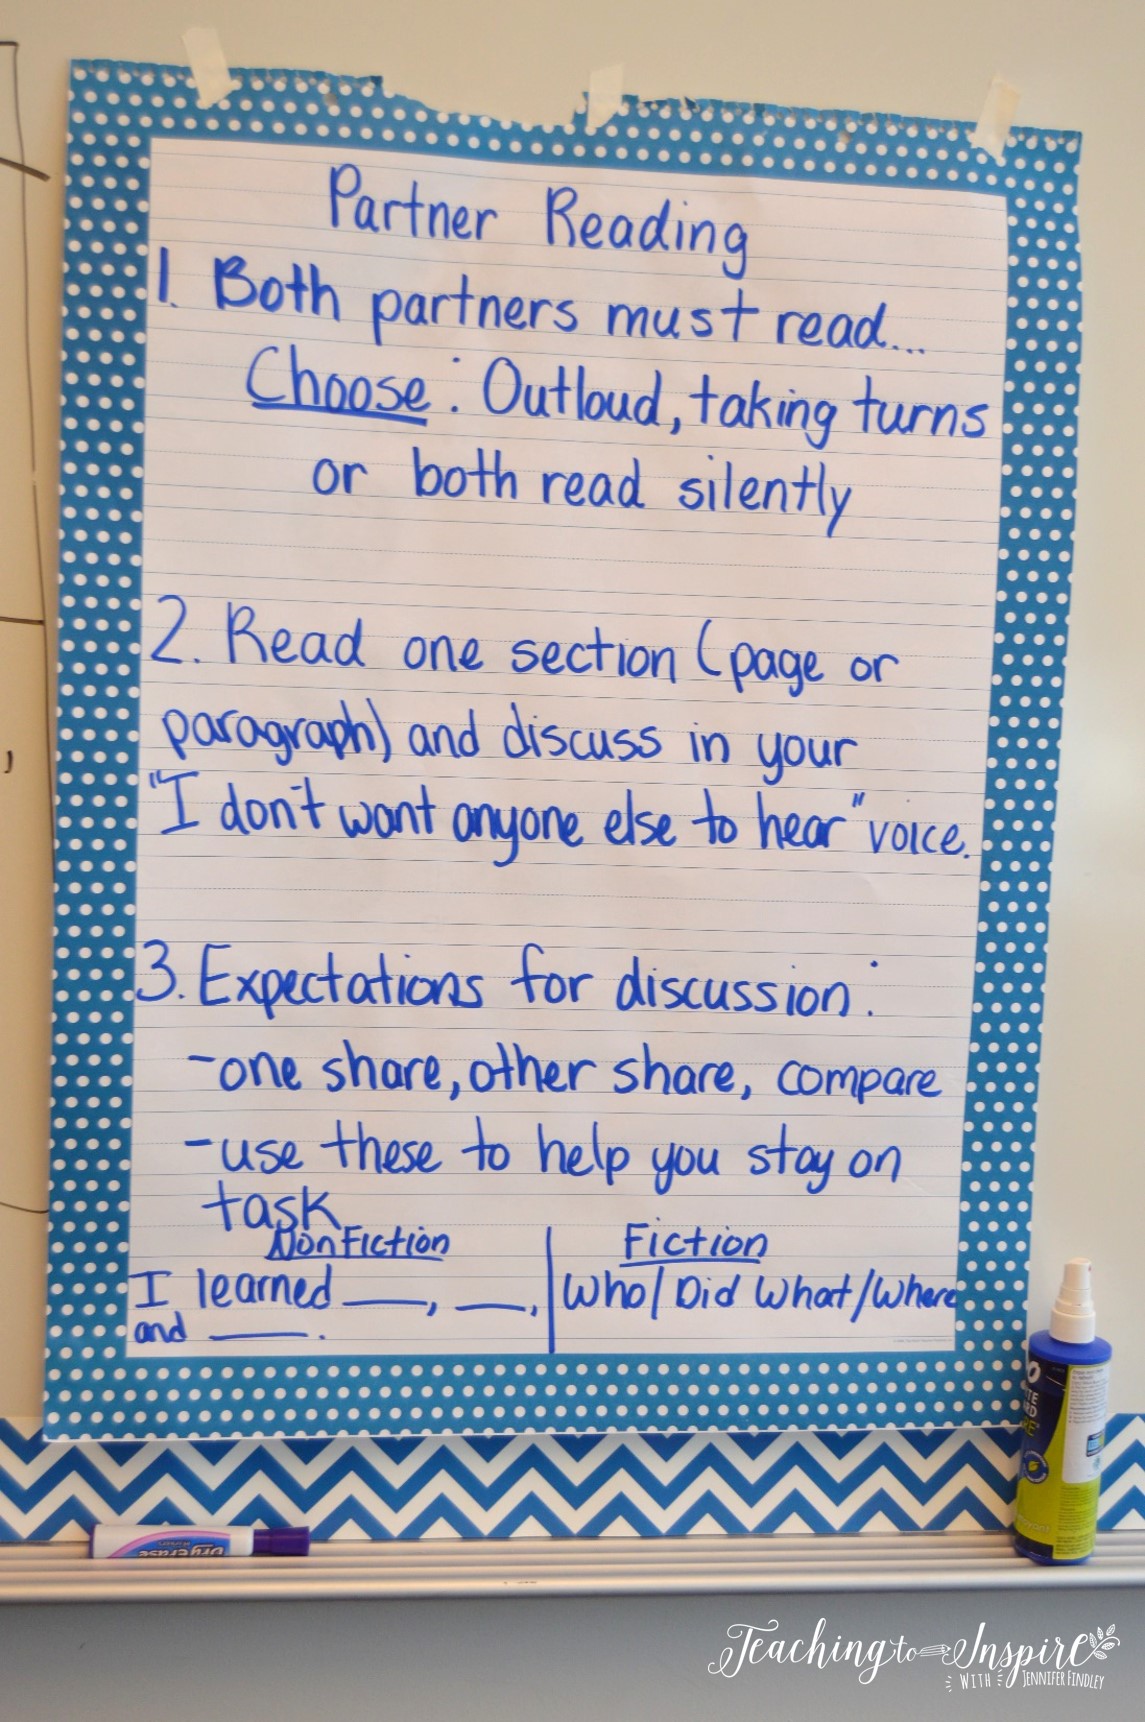 Partner Reading
1. Both partners must read...
Choose: Outloud, taking turns
or both read silently
2. Read one section (page or
paragraph) and discuss in your
"I don't want anyone else to hear" voice.
3. Expectations for discussion:
-one share, other share, compare
-use these to help you stay on
task
NonFiction
I learned ___, ___,
and ___.
Fiction
Who/Did What/Where
Dry Erase
Teaching to Inspire
WITH JENNIFER FINDLEY